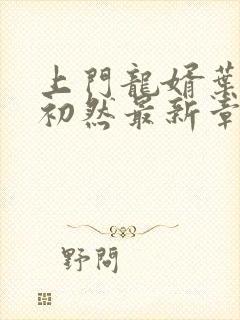 上門龍婿葉
初然最新章
野問